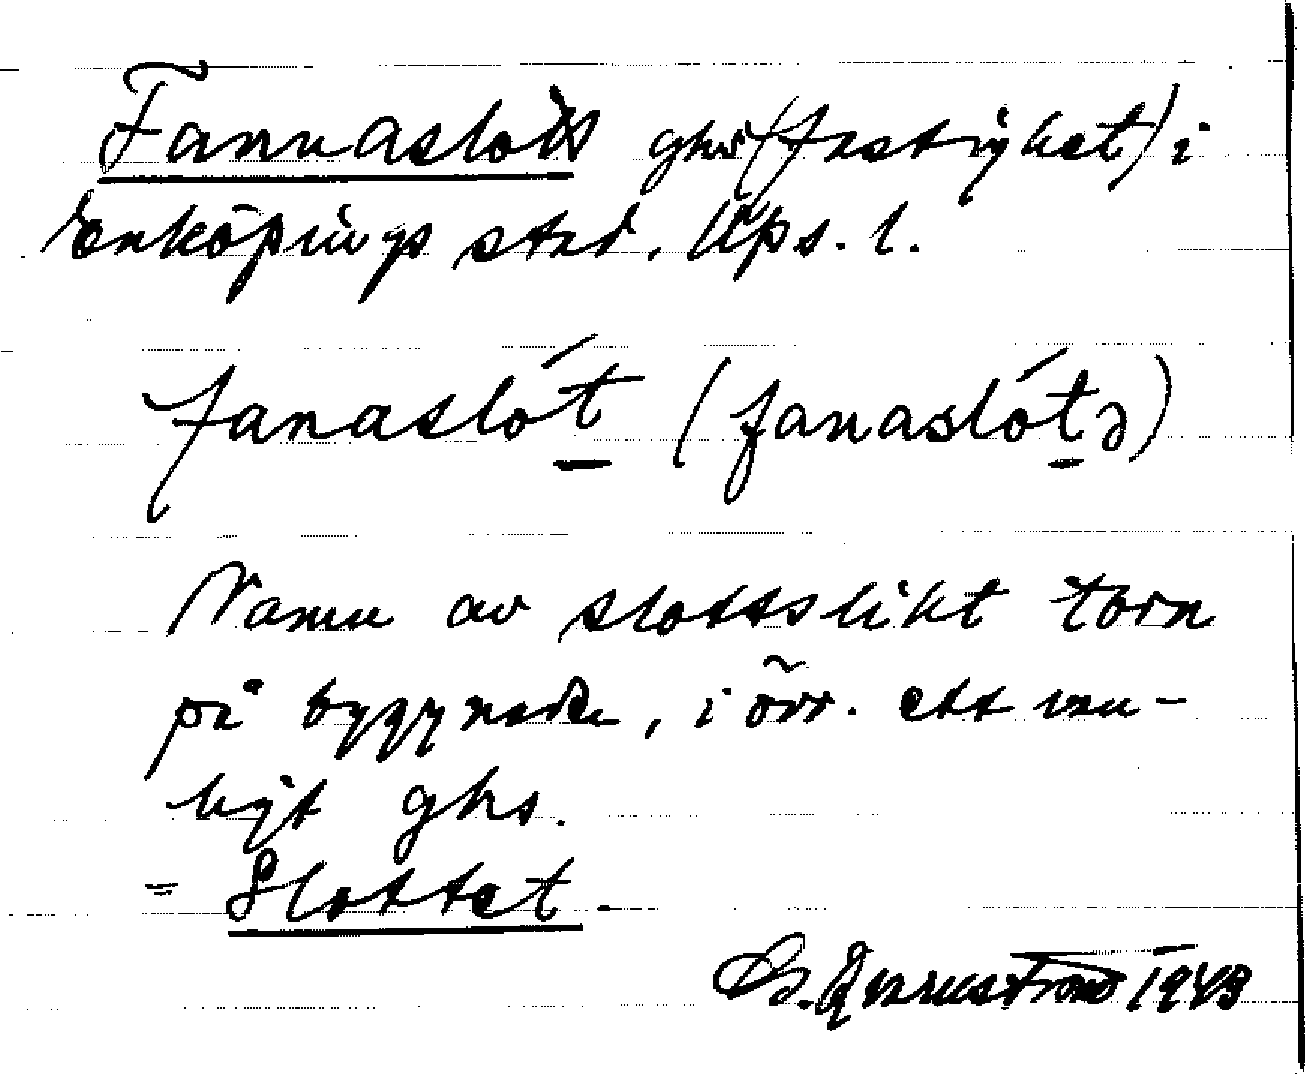 Fannaslott ghs (fastighet) i
Enköpings stad, Ups. l.
fanaslót (fanaslótə)
Namn av slottslikt torn
på byggnaden, i övr. ett van-
ligt ghs.
= Slottet.
1949